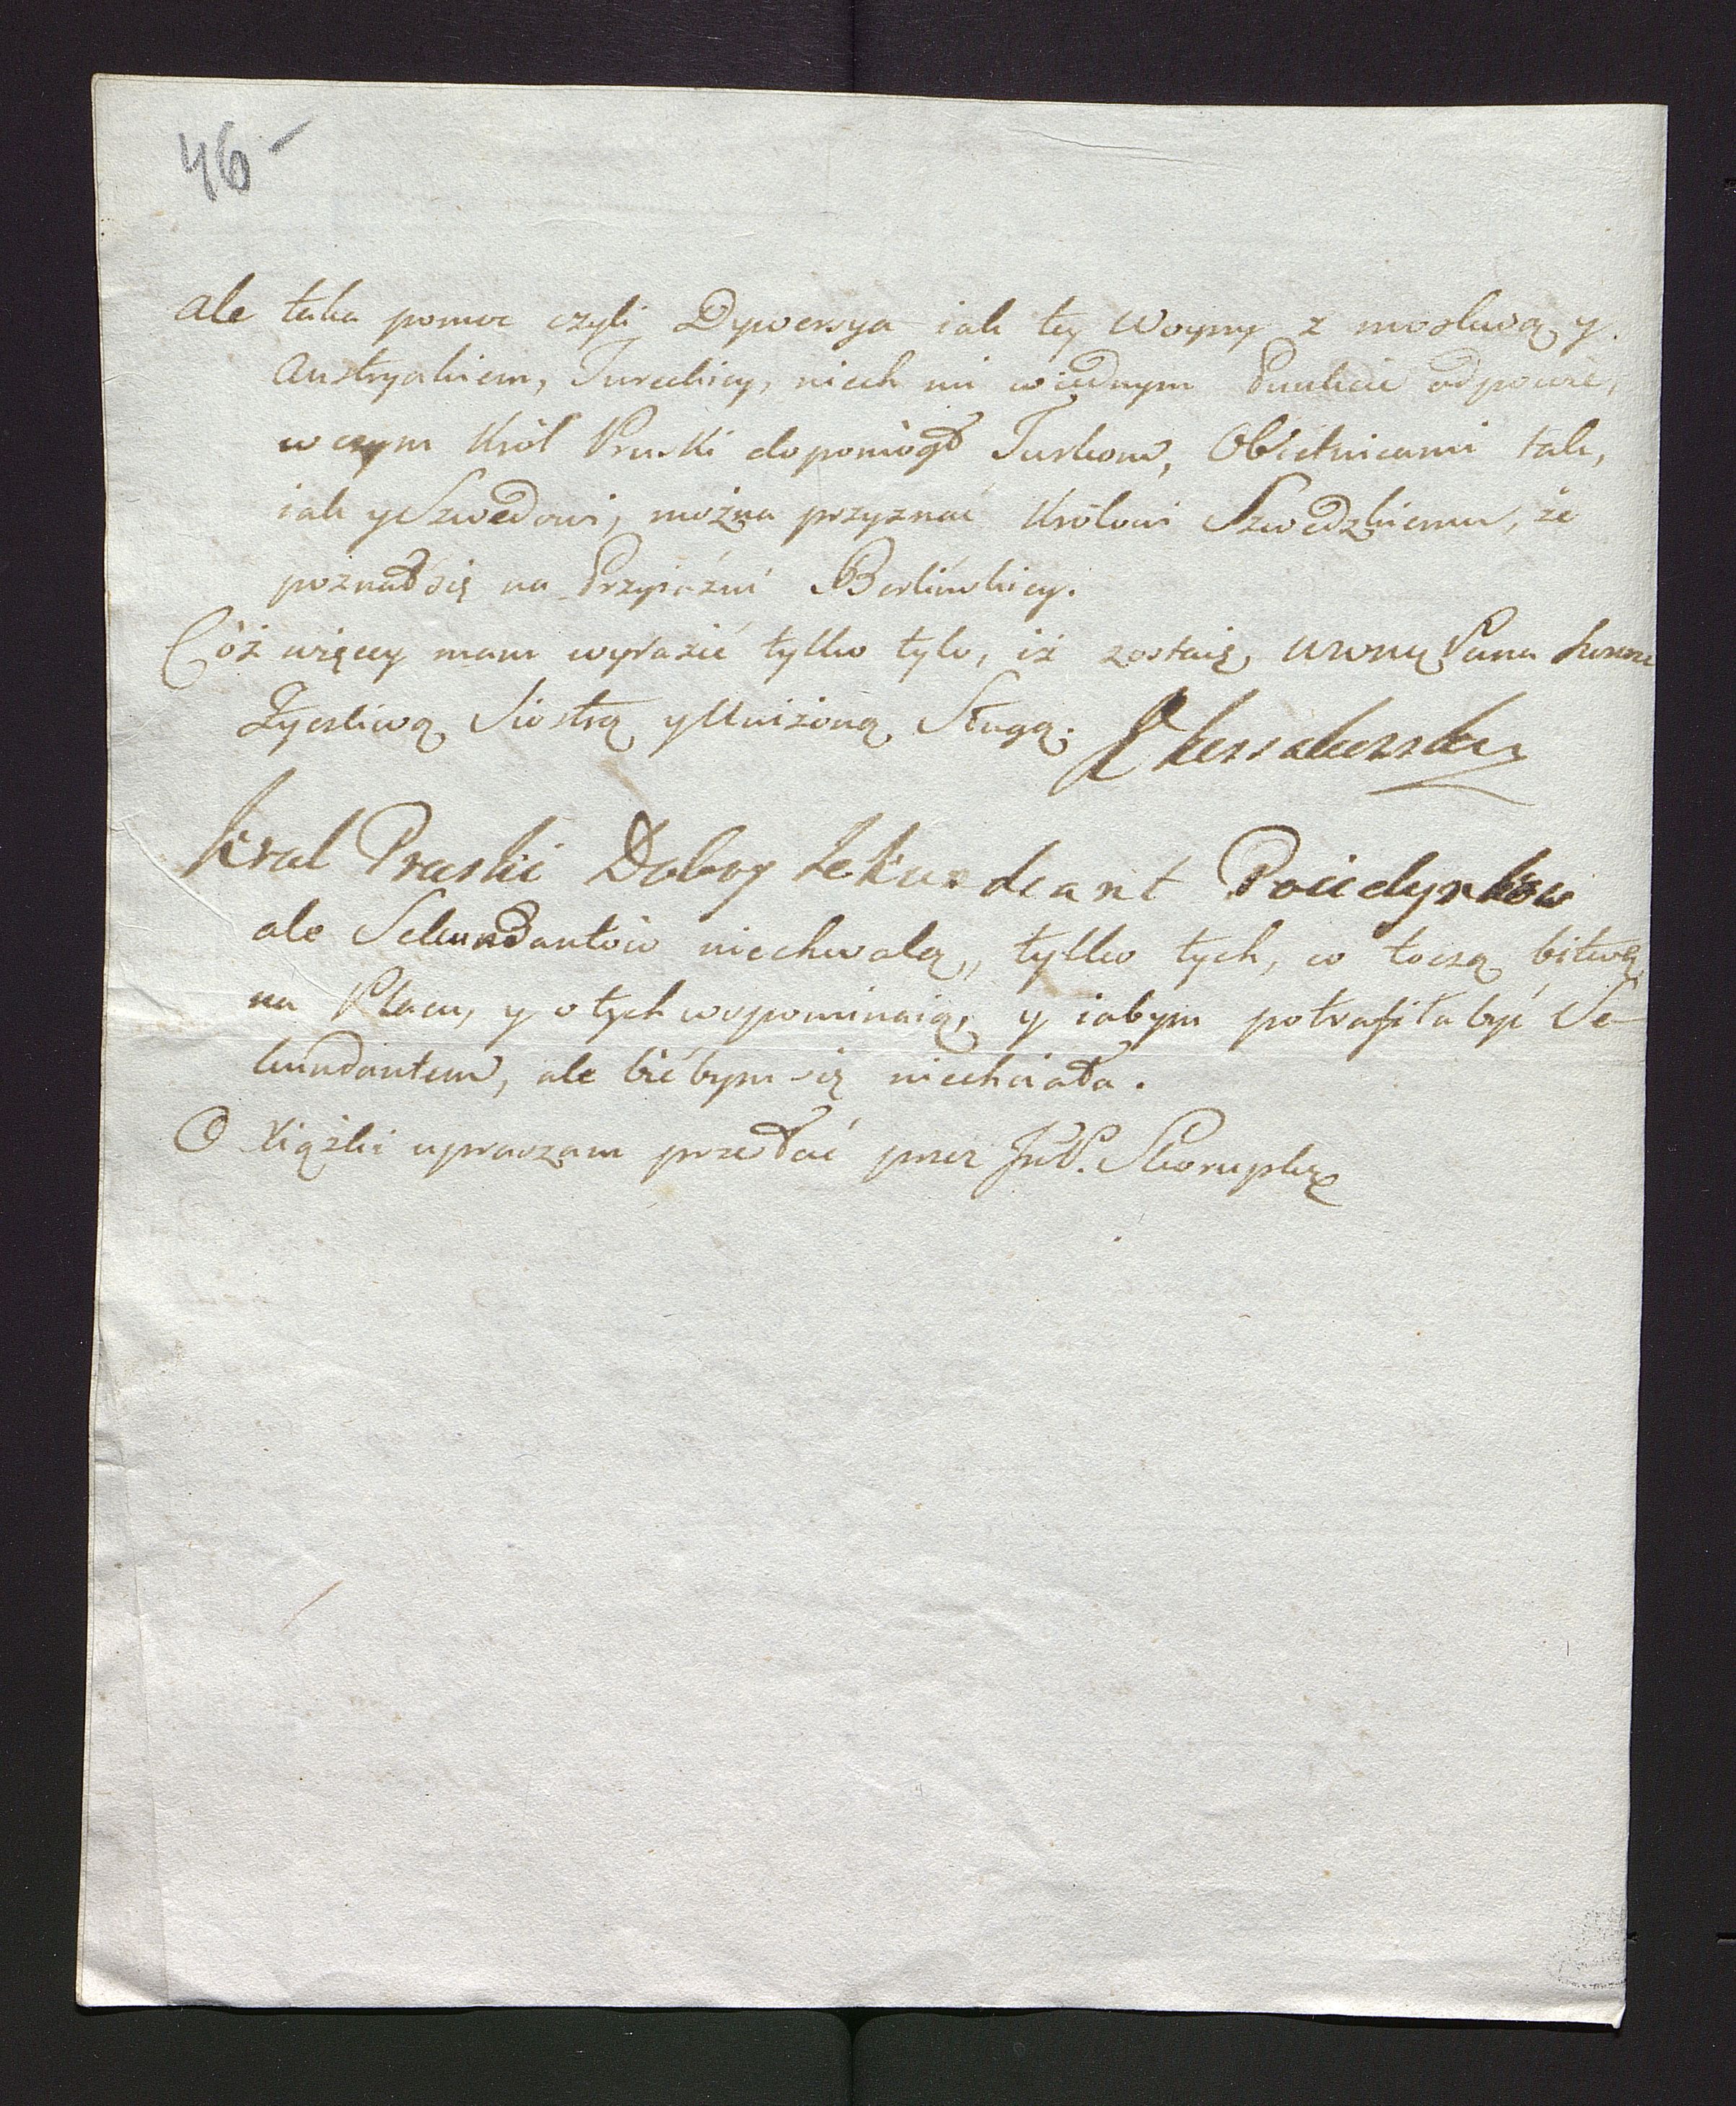 46-
ale taka pomoc czyli Dywersya iak tey Woyny z moskwą y
Austryakiem, Tureckiey, niech mi wiednym Punkcie odpowie,
w czym Król Pruski dopomógł Turkom, Obietnicami tak,
iak y Szwedowi, można przyznać Królowi Szwedzkiemu, że
poznał się na Przyiaźni Berlińskiey.
Cóż więcey mam wyrazić tylko tylo, iż zostaię Pana
Życzliwą Siostrą y Uniżoną Sługą.
Krol Pruski Dobry Sekundant Poiedynkow
ale Sekundantów niechwalą, tylko tych, co toczą bitwę
na Placu, y o tych wspominaią, y iabym potrafiła być Se-
kundantem, ale bić bym się niechciała.
O Xiążki upraszam przesłać przez JmP. Skorupkę